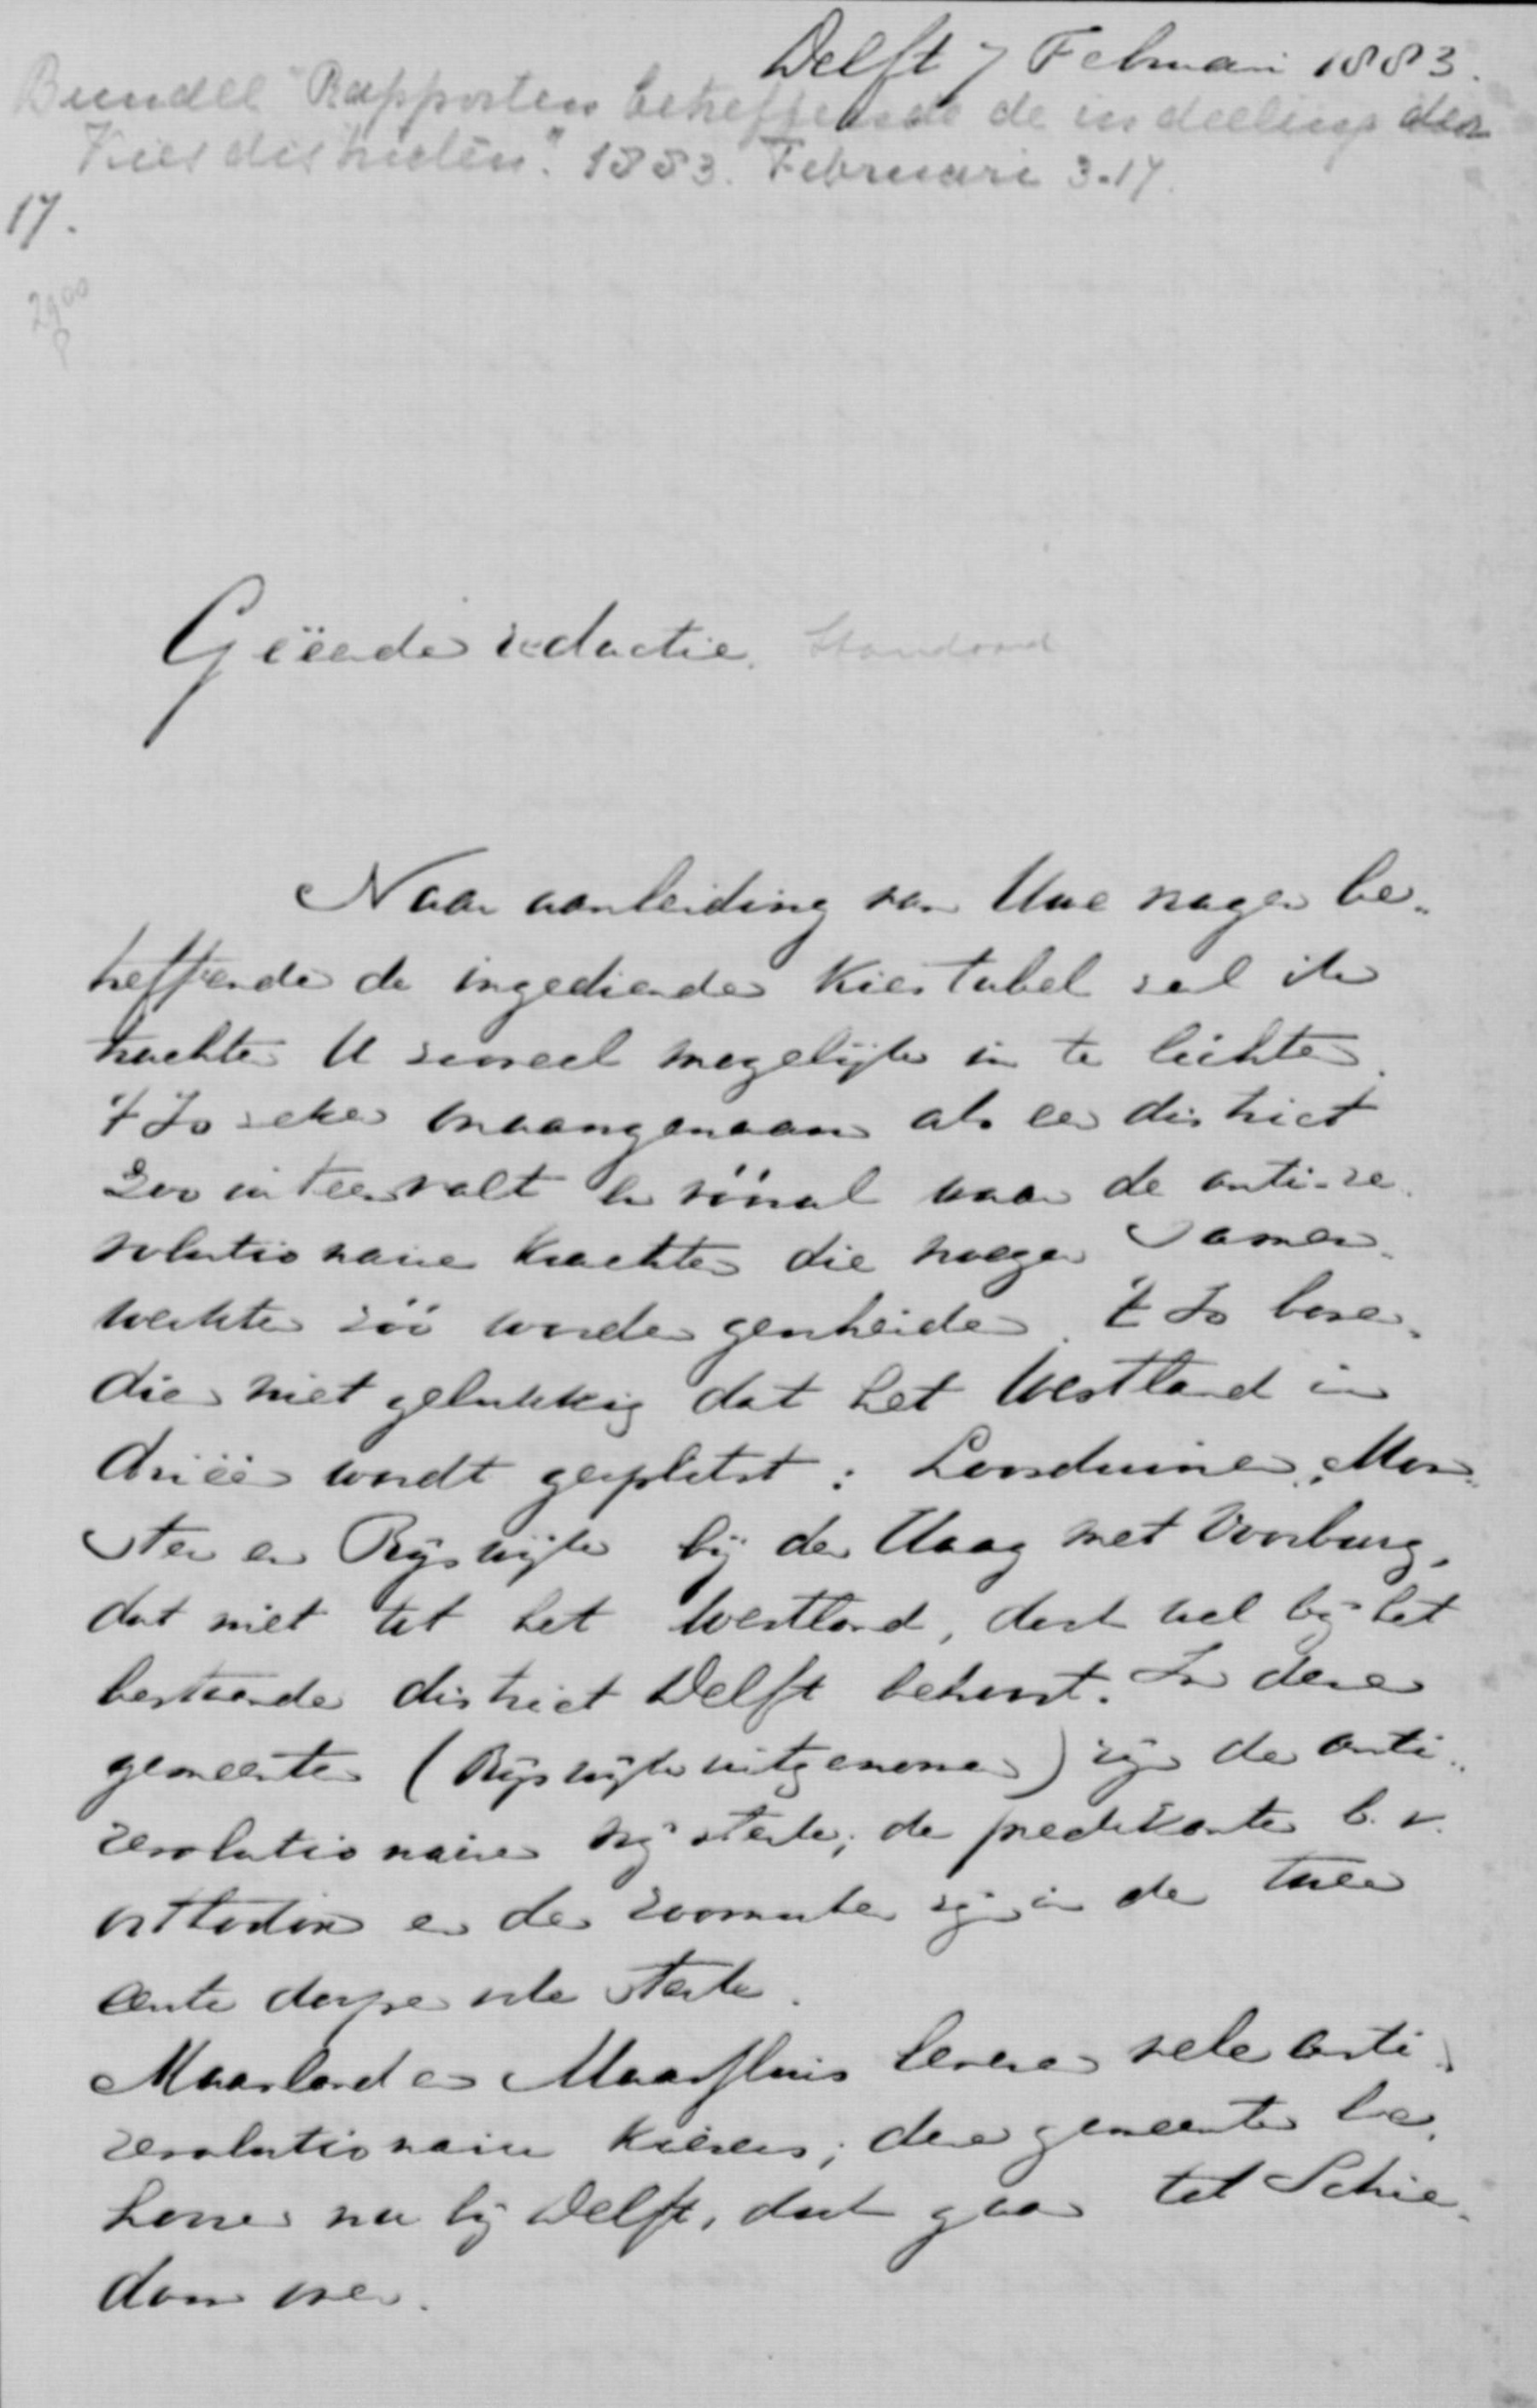 Delft 7 Februari 1883.
Bundel "Rapporten betreffende de indeeling der
Kiesdistricten". 1883. Februari 3-17.
17.
2900
Geëerde redactie. Standaard
Naar aanleiding van Uwe vragen be-
treffende de ingediende Kiestabel zal ik
trachten U zooveel mogelijk in te lichten.
't Is zeker onaangenaam als een district
zoo uiteenvalt en vóóral waar de anti-re-
volutionaire krachten die vroeger samen-
werkten zóó worden gescheiden. 't Is boven-
dien niet gelukkig dat het Westland in
drieën wordt gesplitst: Loosduinen, Mon-
ster en Rijswijk bij den Haag met Voorburg,
dat niet tot het Westland, doch wel bij het
bestaande district Delft behoort. In deze
gemeenten (Rijswijk uitgenomen) zijn de anti-
revolutionairen vrij sterk; de predikanten b.v.
orthodox en de zoomede zijn in de twee
eerste dorpen ook sterk.
Maasland en Maassluis leveren vele anti-
revolutionaire kiezers; deze gemeenten be-
hooren nu bij Delft, doch gaan tot Schie-
dam over.